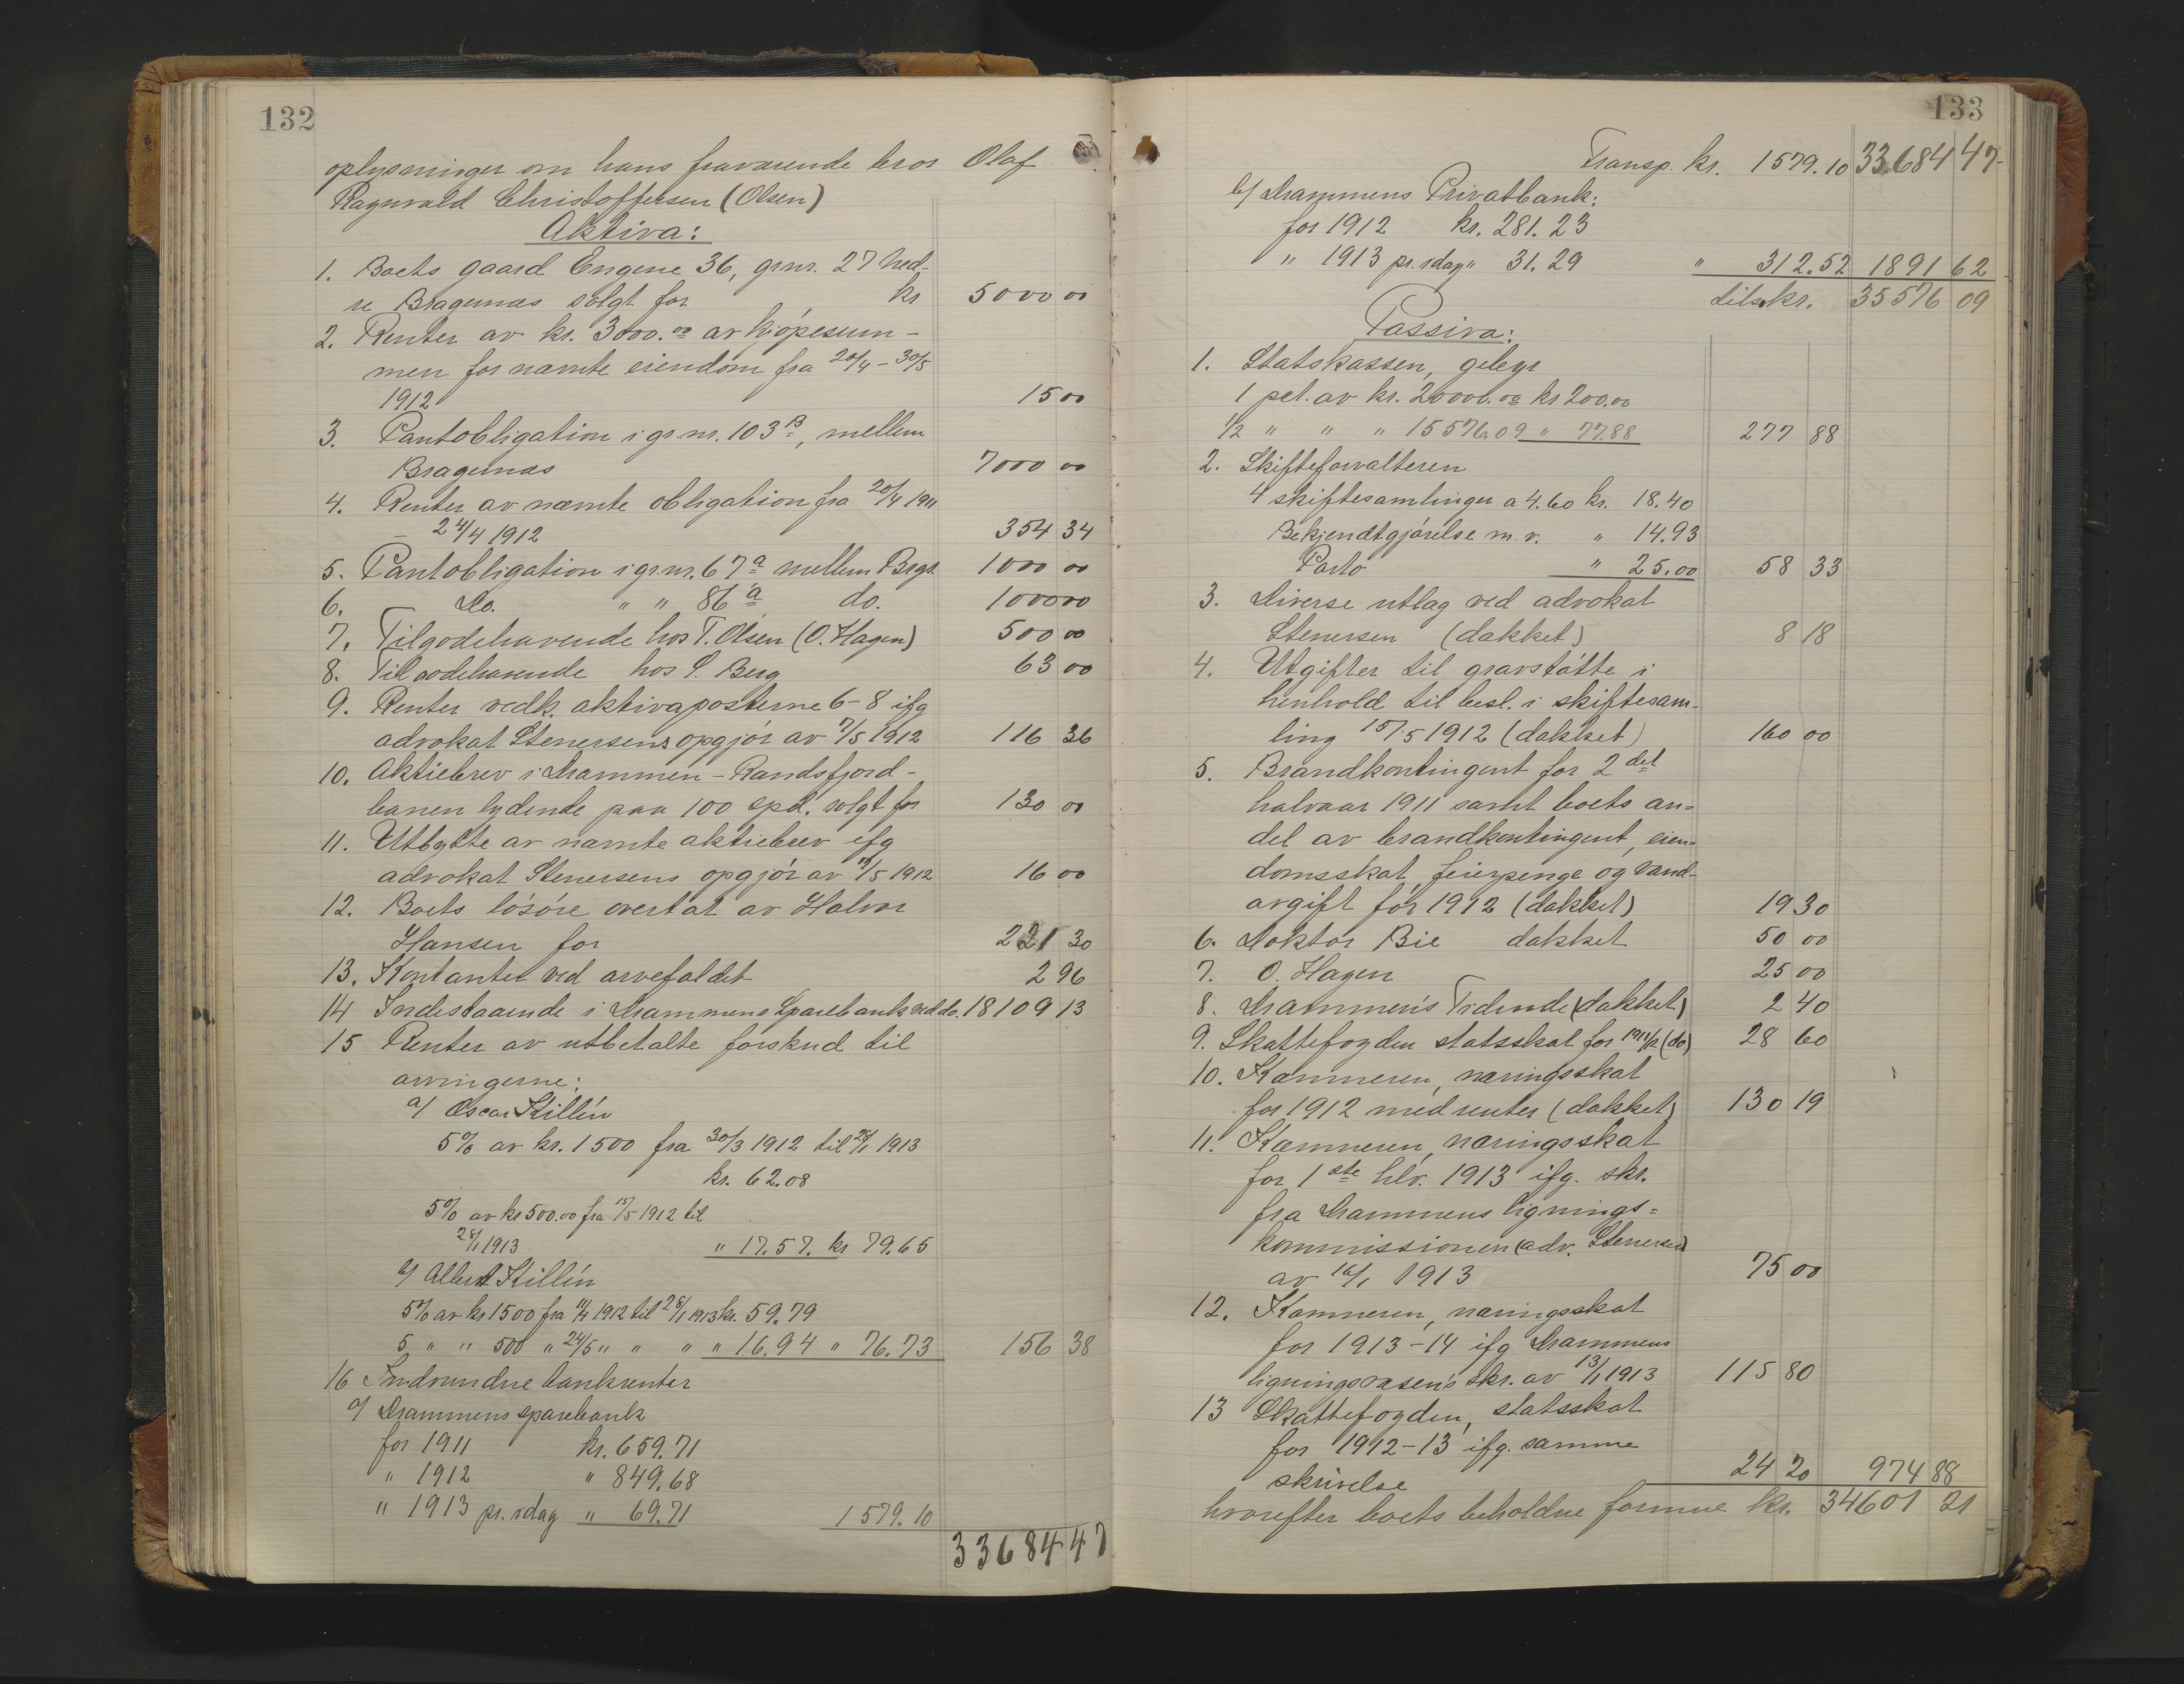 132
oplysninger om hans fraværende bror Olaf
Ragnvald Christoffersen (Olsen)
Aktiva:
1. Boets gaard Engene 36, grnr. 27 ned-
re Bragernæs solgt for kr 5000 00
2. Renter av kr. 3000.00 av kjøpesum-
men for nævnte eiendom fra 20/4 - 30/5
1912 15 00
3. Pantobligation i gr.nr. 103 B, mellem
Bragernæs 7000 00
4. Renter av nævnte obligation fra 20/4 1911
- 24/4 1912 354 34
5. Pantobligation i gr.nr. 67 a mellem Brgs. 1000 00
6. Do. " " 86 a do. 1000 00
7. Tilgodehavende hos T. Olsen (O. Hagen) 500 00
8. Tilgodehavende hos S. Berg 63 00
9. Renter vedk. aktivaposterne 6-8 ifg
advokat Stenersens opgjør av 7/5 1912 116 36
10. Aktiebrev i Drammen - Randsfjord-
banen lydende paa 100 spd. solgt for 130 00
11. Utbytte av nævnte aktiebrev ifg
advokat Stenersens opgjør av /5 1912 16 00
12. Boets løsøre overtat av Halvor
Hansen for 221 30
13. Kontanter ved arvefaldet 2 96
14 Indestaaende i Drammens Sparebank ved do. 18109 13
15 Renter av utbetalte forskud til
arvingerne:
a/ Oscar Killín
5% av kr. 1500 fra 30/3 1912 til 28/1 1913
kr. 62.08
5% av kr 500.00 fra 15/5 1912 til
28/1 1913 " 17.57. kr 79.65
b/ Albert Killín
5% av kr 1500 fra 11/4 1912 til 28/1 1913 kr. 59.79
5 " " 500 " 24/5 " " " " 16.94 " 76.73 156 38
16 Indvundne bankrenter
a/ Drammens sparebank
for 1911 kr. 659.71
" 1912 " 849.68
" 1913 pr. idag " 69.71 1579.10
33684 47
133
Transp. kr. 1579.10 33684 47
b/ Drammens Privatbank:
for 1912 kr. 281.23
" 1913 pr. idag " 31.29 " 312.52 1891 62
tils. kr. 35576 09
Passiva:
1. Statskassen, gebyr
1 pct. av kr. 20000.00 kr 200.00
1/2 " " " 15576.09 " 77.88 277 88
2. Skifteforvalteren
4 skiftesamlinger a 4.60 kr. 18.40
Bekjendtgjørelse m. v. " 14.93
Porto " 25.00 58 33
3. Diverse utlag ved advokat
Stenersen (dækket) 8 18
4. Utgifter til gravstøtte i
henhold til besl. i skiftesam-
ling 15/5 1912 (dækket) 160 00
5. Brandkontingent for 2 det
halvaar 1911 samt boets an=
del av brandkontingent, eien=
domsskat, feierpenge og vand-
avgift for 1912 (dækket) 19 30
6. Doktor Bie dækket 50 00
7. O. Hagen 25 00
8. Drammen's Tidende (dækket) 2 40
9. Skattefogden statsskat for 1911/12 (do) 28 60
10. Kæmneren, næringsskat
for 1912 med renter (dækket) 130 19
11. Kæmneren, næringsskat
for 1 ste hlv. 1913 ifg. skr.
fra Drammens lignings=
kommissionen (adv. Stenersen)
av 16/1 1913 75 00
12. Kæmneren, næringsskat
for 1913-14 ifg Drammens
ligningsvæsen's skr. av 13/1 1913 115 80
13 Skattefogden, statsskat
for 1912-13 ifg. samme
skrivelse 24 20 974 88
hvorefter boets beholdne formue kr. 34601 21